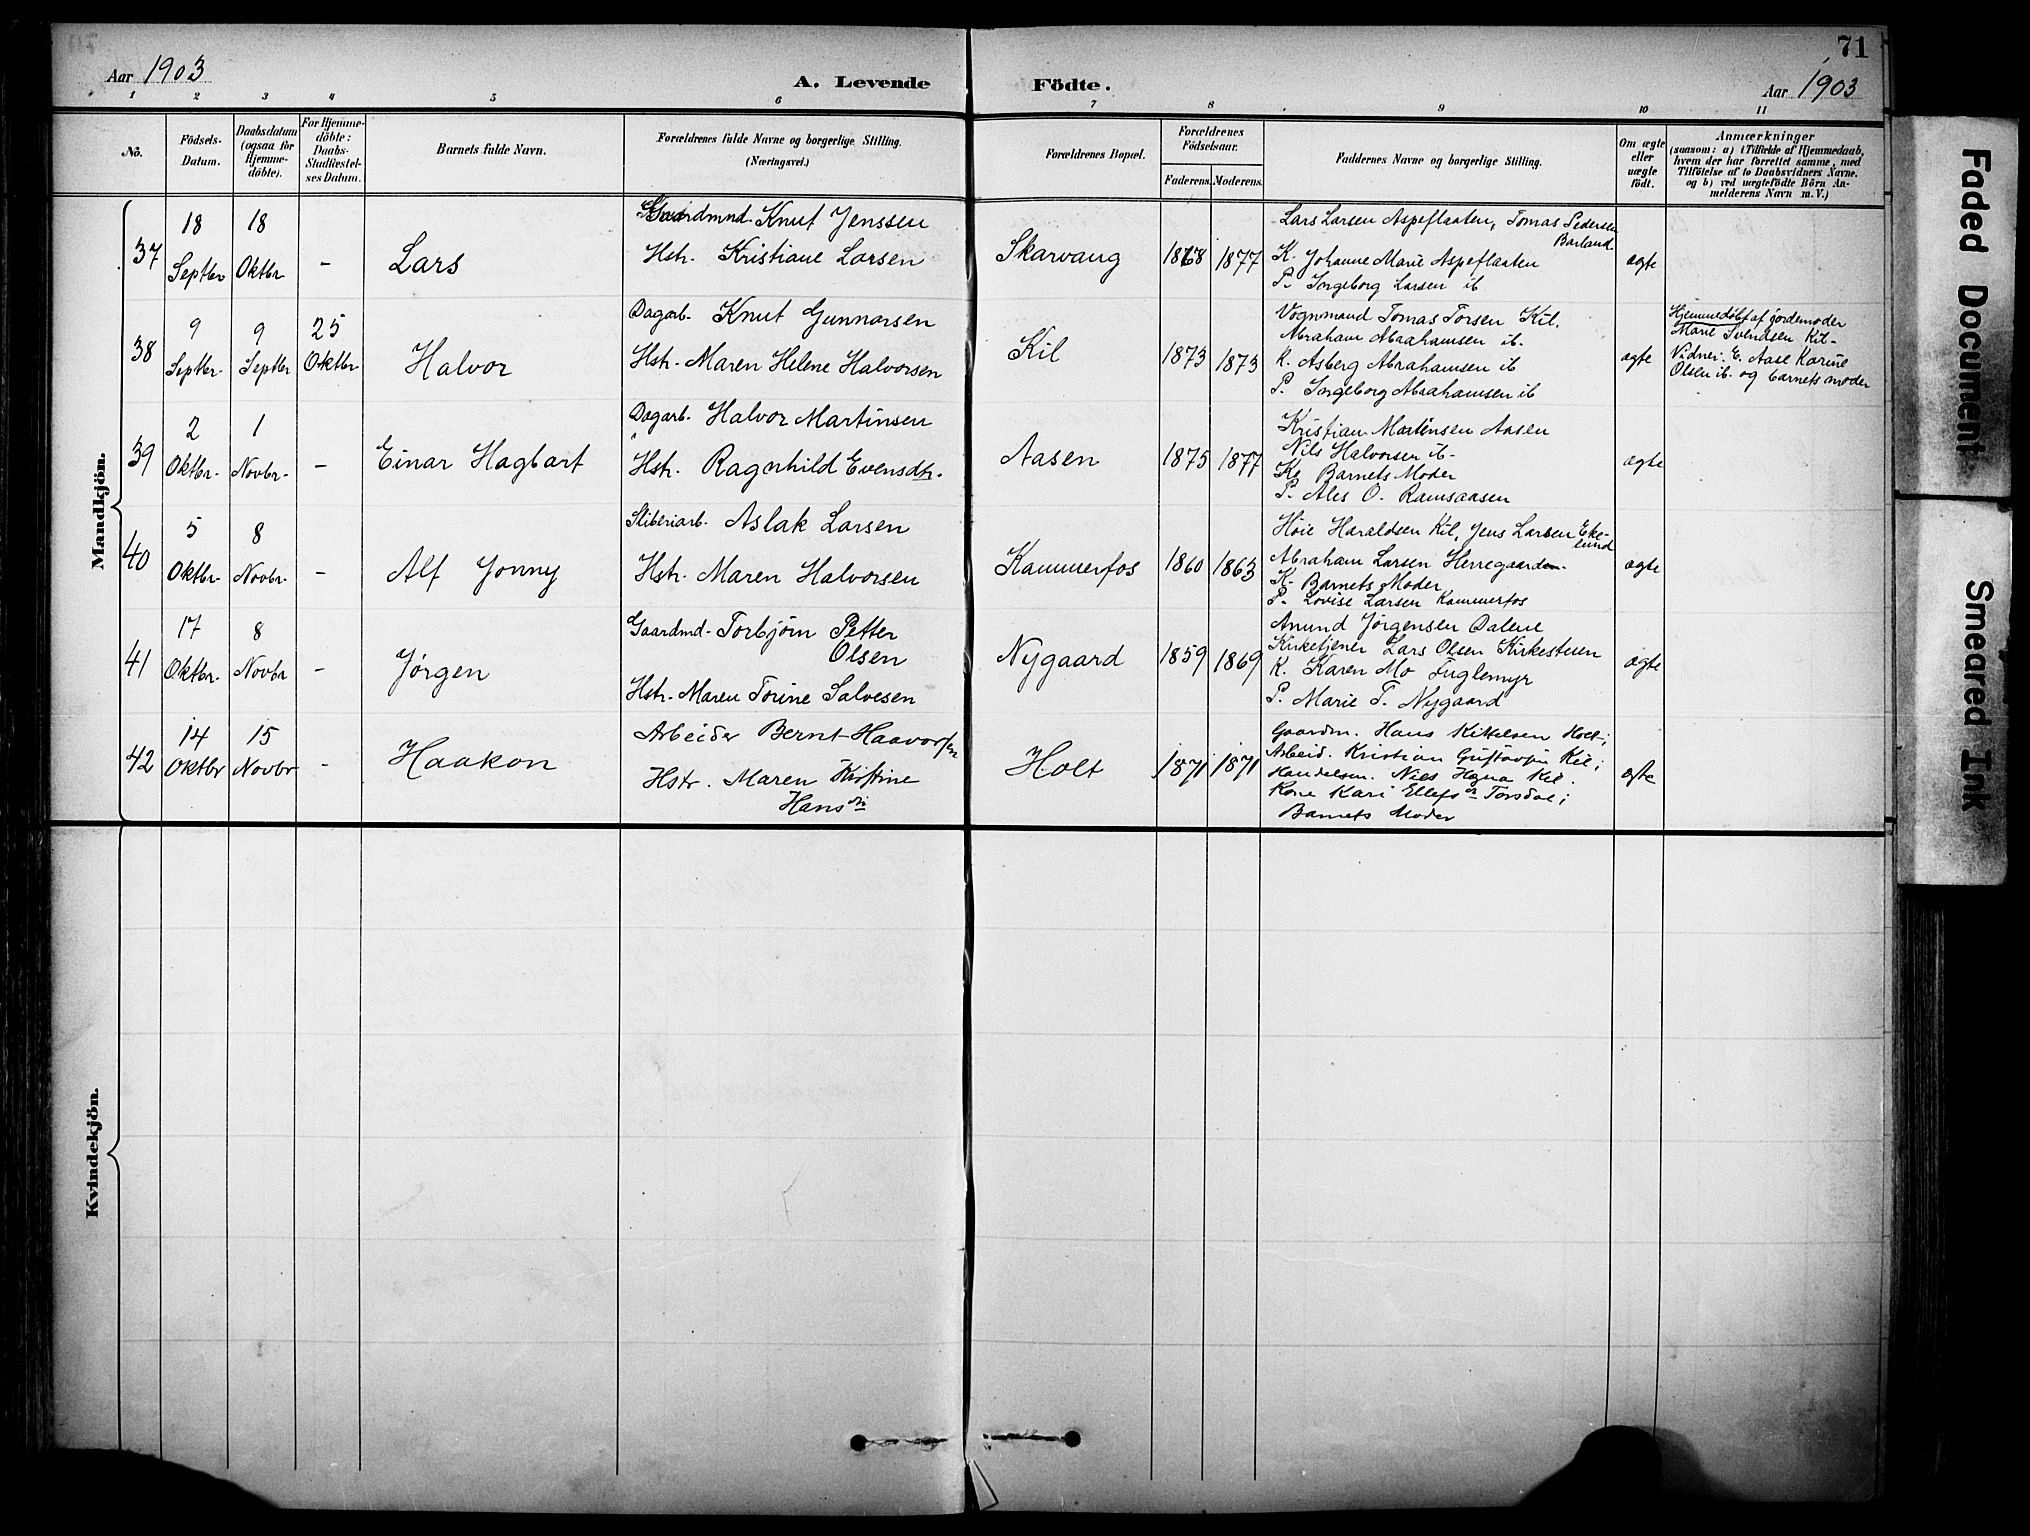 71
Aar 1903
A. Levende
Födte.
Aar 1903
1 2 3 4 5 6 7 8 9 10 11
No.
Födsels-
Datum.
Daabsdatum
(ogsaa for
Hjemme-
döbte).
For Hjemme-
döbte:
Daabs-
Stadfæstel-
ses Datum.
Barnets fulde Navn.
Forældrenes fulde Navne og borgerlige Stilling.
(Næringsvei.)
Forældrenes Bopæl.
Forældrenes
Födselsaar.
Faderens. Moderens.
Faddernes Navne og borgerlige Stilling.
Om ægte
eller
uægte
födt.
Anmærkninger
(saasom: a) i Tilfælde af Hjemmedaab,
hvem der har forrettet samme, med
Tilföielse af to Daabsvidners Navne.
og b) ved uægtefödte Börn An-
melderens Navn m. V.)
Mandkjön.
37
18
Septbr
18
Oktbr
-
Lars
Gaardmnd. Knut Jenssen
Hstr. Kristiane Larsen
Skarvang
1868
1877
Lars Larsen Aspeflaaten, Tomas Pedersen
Barland
K. Johanne Marie Aspeflaaten
P. Ingeborg Larsen ib
ægte
38
9
Septbr.
9
Septbr
25
Oktbr
Halvor
Dagarb. Knut Gunnarsen
Hstr. Maren Helene Halvorsen
Kil
1873
1873
Vognmand Tomas Torsen Kil.
Abraham Abrahamsen ib.
K. Asberg Abrahamsen ib
P. Ingeborg Abrahamsen ib
ægte
Hjemmedöbt af jordemoder
Marie Svendsen Kil-
Vidner: E. Aase Karine
Olsen ib. og barnets moder
39
2
Oktbr.
1
Novbr.
-
Einar Hagbart
Dagarb. Halvor Martinsen
Hstr. Ragnhild Evensdtr.
Aasen
1875
1877
Kristian Martinsen Aasen
Nils Halvorsen ib-
K. Barnets Moder
P. Ales O. Ramsaasen
ægte
40
5
Oktbr.
8
Novbr.
-
Alf Jonny
Sliberiarb. Aslak Larsen
Hstr. Maren Halvorsen
Kammerfos
1860
1863
Höie Haraldsen Kil, Jens Larsen Eke-
lund
Abraham Larsen Herregaarden
K. Barnets Moder
P. Lovise Larsen Kammerfos
ægte
41
17
Oktbr.
8
Novbr
-
Jørgen
Gaardmd. Torbjørn Petter
Olsen
Hstr. Maren Torine Salvesen
Nygaard
1859
1869
Anund Jørgensen Dalene
Kirketjener Lars Olsen Kirkestuen
K. Karen Mo Fuglemyr
P. Marie T. Nygaard
ægte
42
14
Oktbr
15
Novbr
-
Haakon
Arbeider Bernt Haavorsen
Hstr. Maren Kristine
Hansdtr
Holt
1871
1871
Gaardm. Hans Kittelsen Holt;
Arbeid. Kristian Gustavsen Kil;
Handelsm. Nils Kil.
Kone Kari Ellefsen Torsdal;
Barnets Moder
ægte
Kvindekjön.
Faded Document
Smeared Ink